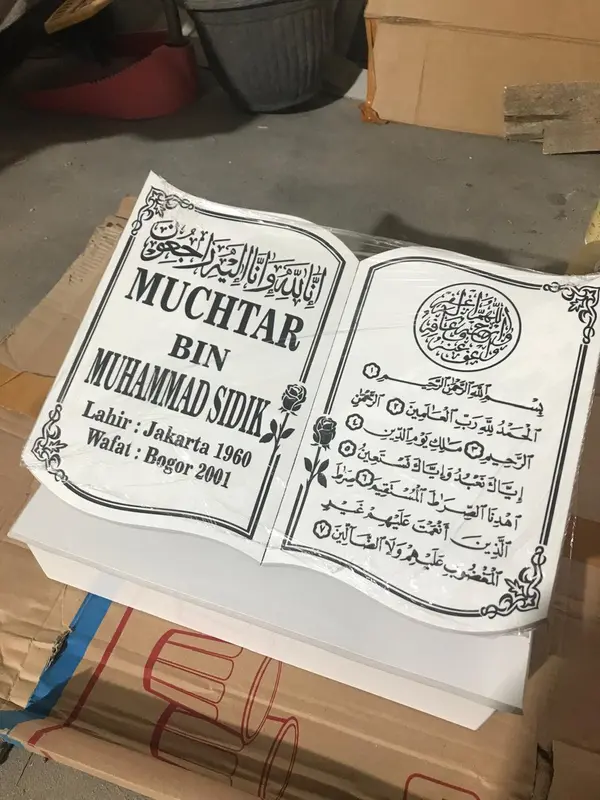 إنا لله وإنا إليه راجعون
MUCHTAR
BIN
MUHAMMAD SIDIK
Lahir : Jakarta 1960
Wafat : Bogor 2001
اللهم اغفر له وارحمه وعافه واعف عنه
بسم الله الرحمن الرحيم ١
الحمد لله رب العالمين ٢ الرحمن
الرحيم ٣ ملك يوم الدين ٤
إياك نعبد وإياك نستعين ٥
اهدنا الصراط المستقيم ٦ صراط
الذين أنعمت عليهم غير
المغضوب عليهم ولا الضالين ٧